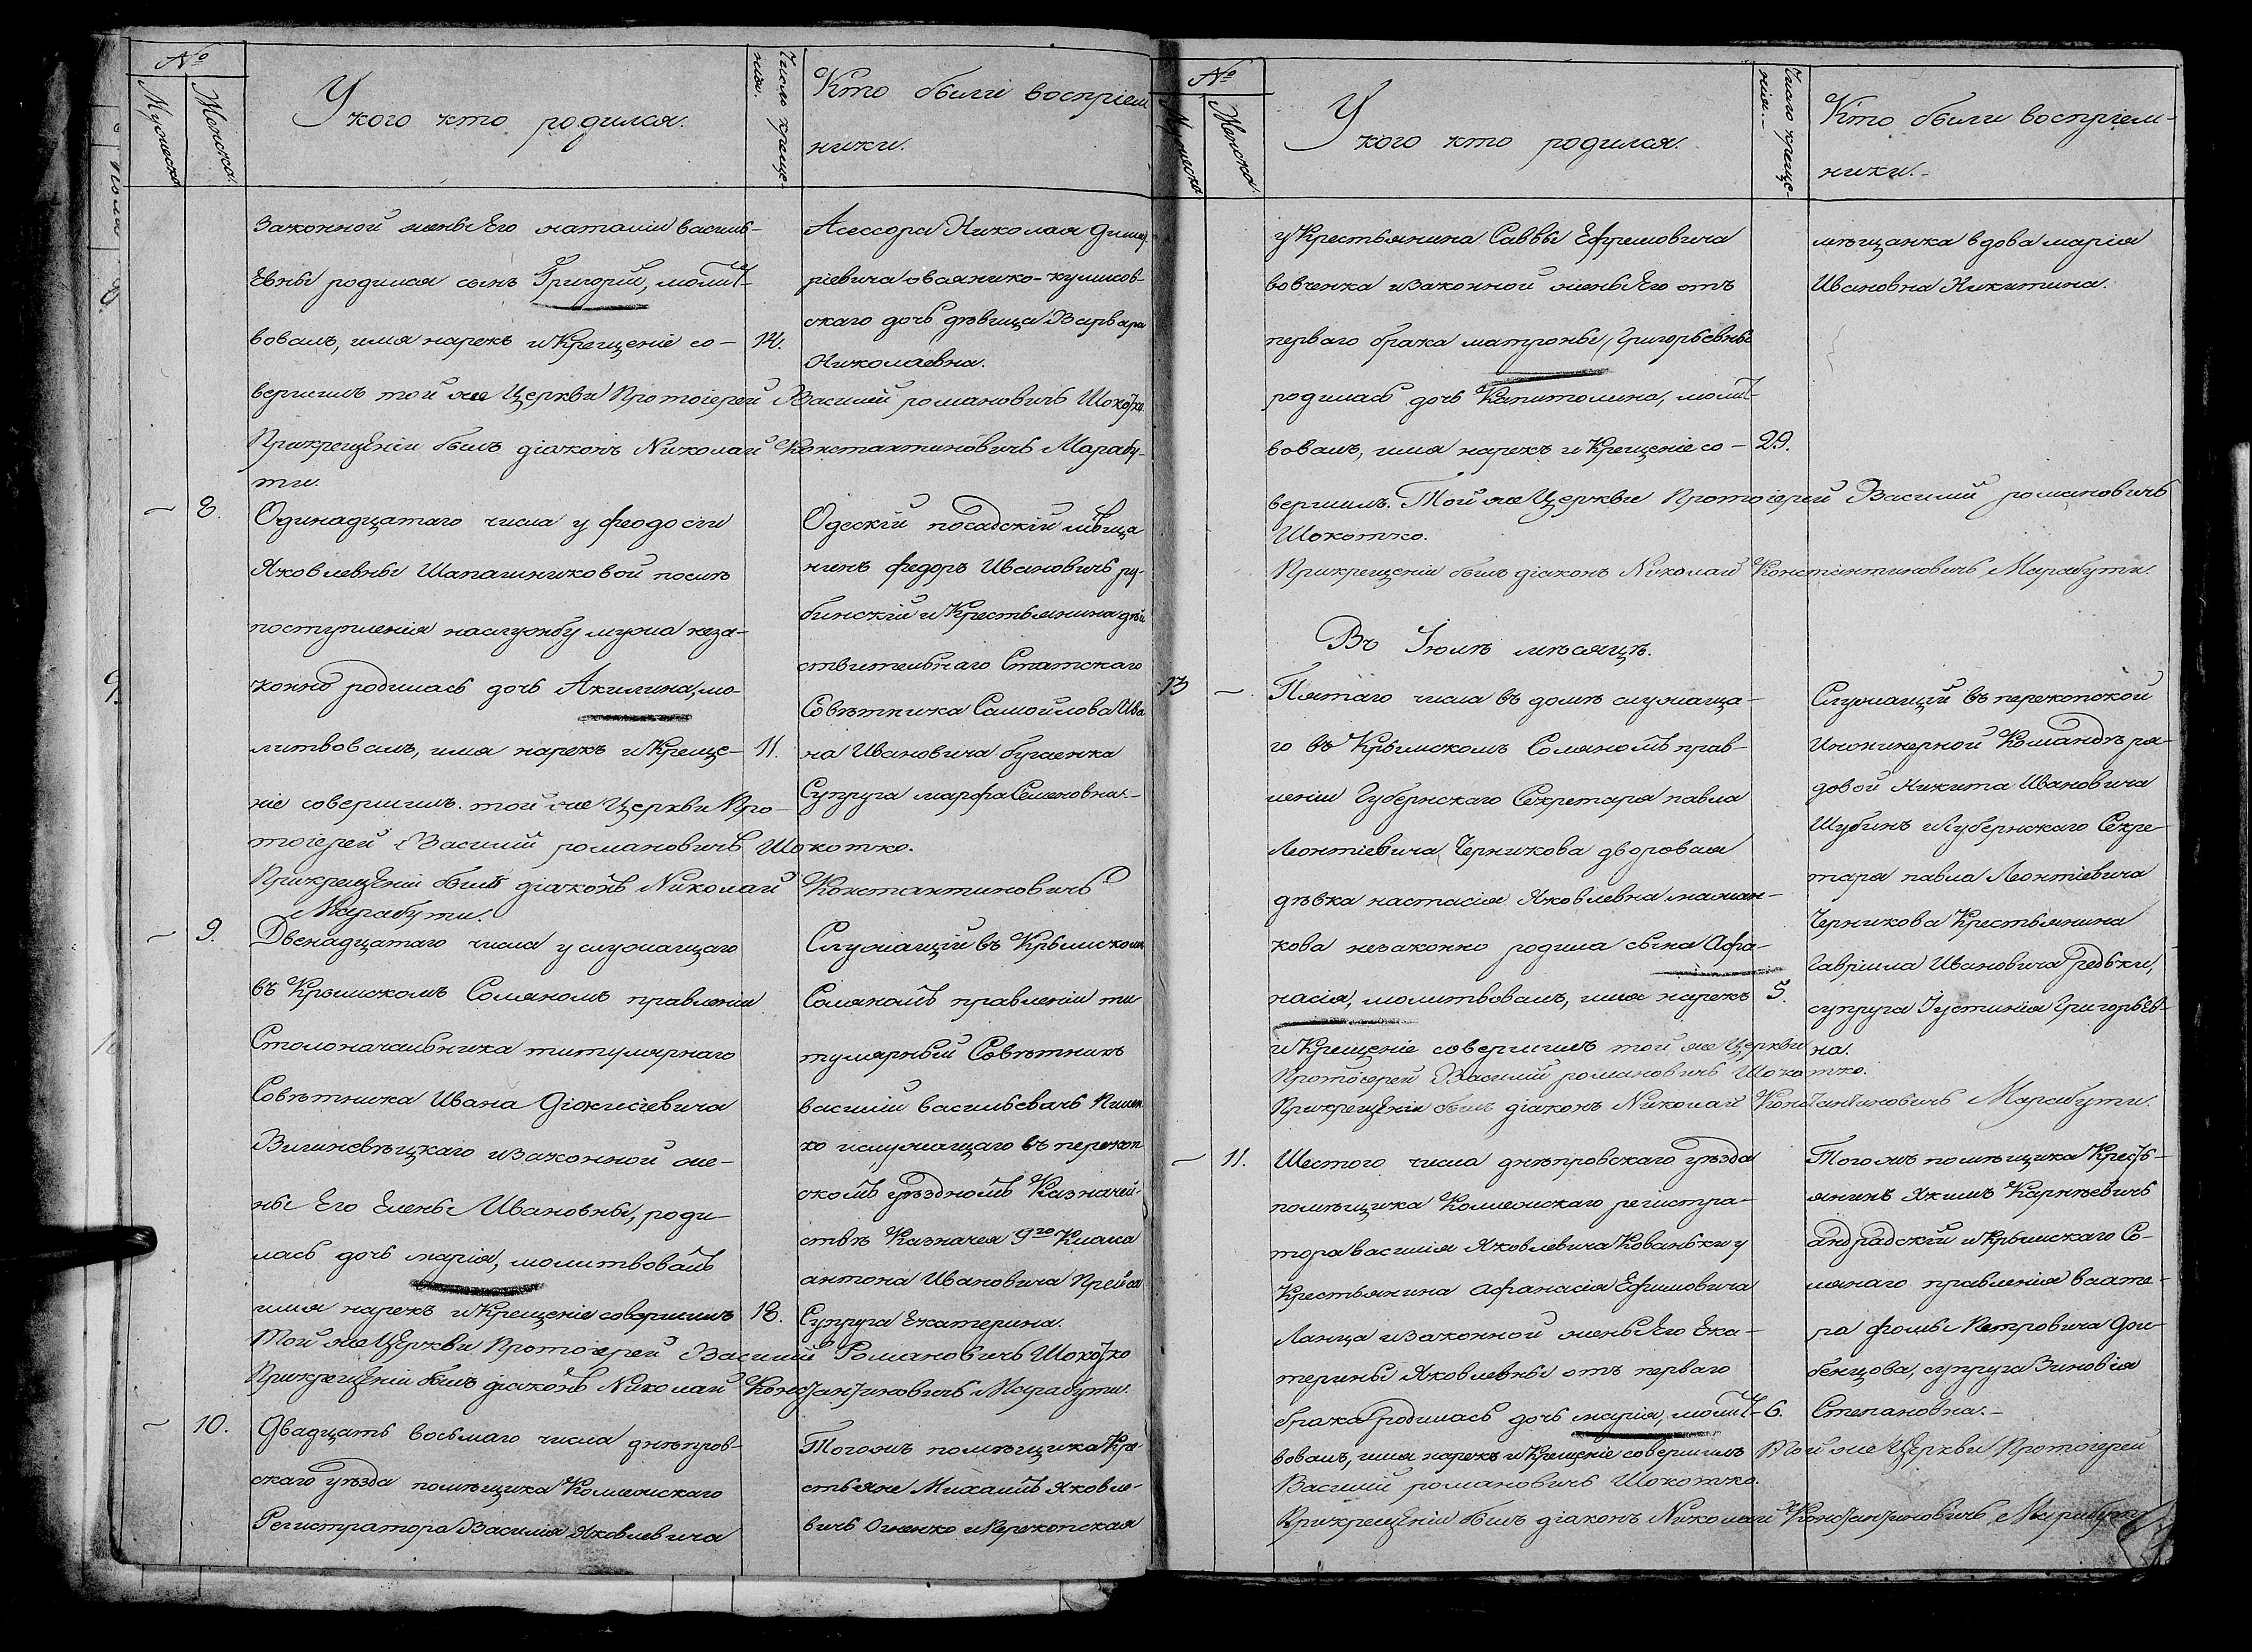 №
Мужеска
Женска
У кого кто родился.
Число креще-
нія.
Кто были воспріем
ники.
законной жены Его наталіи василь-
Евны родился сынъ Григорий, молит-
вовалъ, имя нарекъ и Крещеніе со-
14.
вершилъ той же Церкви Протоіерей Василій романовичъ Шокотко.
Прикрещеніи былъ діаконъ Николай Константиновичъ Марабу-
ти.
Асессора Николая Димит
ріевича овсянико-куликов-
скаго дочь дѣвица Варвара
Николаевна.
8.
Одинадцатаго числа у феодосіи
Яковлевны Шапашниковой послѣ
поступленія наслужбу мужа неза-
конно родилась дочь Акилина, мо-
литвовалъ, имя нарекъ и Креще-
11.
ніе совершилъ. той же Церкви Про-
тоіерей Василій романовичъ Шокотко.
Прикрещеніи былъ діаконъ Николай Константиновичъ
Марабути.
Одескій посадскій мѣща
нинъ федоръ Ивановичъ ру-
бинскій и Крестьянина дѣй
ствительнаго Статскаго
Совѣтника Самойлова Ива
на Ивановича бугаенка
Супруга марфа Семеновна.-
9.
Двенадцатаго числа у служащаго
въ Крымскомъ Соляномъ правленіи
Столоначальника титулярнаго
Совѣтника Ивана Діонисіевича
Вишневѣцкаго изаконной же-
ны Его Елены Ивановны, роди-
лась дочь марія, молитвовалъ
имя нарекъ и Крещеніе совершилъ
18.
Той же Церкви Протоіерей Василій Романовичъ Шокотко
Прикрещеніи былъ діаконъ Николай Константиновичъ Марабути.
Служащій въ Крымскомъ
Соляномъ правленіи ти
тулярный Совѣтникъ
василій васильевичъ
ко ислужащаго въ перекоп
скомъ уѣздномъ Казначей-
ствѣ Казначея 9го Класа
антона Ивановича
Супруга Екатерина.
10.
Двадцать восьмаго числа днѣпров-
скаго уѣзда помѣщика Коллежскаго
Регистратора Василія Яковлевича
Тогожъ помѣщика Кре-
стьяне Михаилъ Яковле-
вичъ Огненко и Перекопская
№
Мужеска
Женска
У кого кто родился.
Число креще-
нія.-
Кто были воспріем-
ники.-
у Крестьянина Саввы Ефремовича
вовченка изаконной жены Его отъ
перваго брака матроны Григорьевны
родилась дочь Капитолина, молит-
вовалъ, имя нарекъ и Крещеніе со-
29.
вершилъ. Той же Церкви Протоіерей Василий романовичъ
Шокотко.
Прикрещеніи былъ діаконъ Николай Константиновичъ Марабути.
мѣщанка вдова марія
Ивановна Никитина.
Въ Іюлѣ мѣсяцѣ.
13
Пятаго числа въ домѣ служаща-
го въ Крымскомъ Соляномъ прав-
леніи Губернскаго Секретаря павла
Леонтіевича Черникова дворовая
дѣвка настасія Яковлевна
кова незаконно родила сына Афа-
насія, молитвовалъ, имя нарекъ
5.
и Крещеніе совершилъ той же Церкви
Протоіерей Василій романовичъ Шокотко.
Прикрещеніи былъ діаконъ Николай Константиновичъ Марабути.
Служащій въ перекопской
Инжинерной Командѣ ря-
довой Никита Ивановичъ
Шубинъ и Губернскаго Секре-
таря павла Леонтіевича
Черникова Крестьянина
Гавріила Ивановича Редьки,
супруга Іустинія Григорьев-
на.
11.
Шестого числа днѣпровскаго уѣзда
помѣщика Коллежскаго регистра-
тора василія Яковлевича Кованьки у
Крестьянина Афанасія Ефимовича
Ланца изаконной жены Его Ека-
терины Яковлевны отъ перваго
брака родилась дочь марія, молит-
6.
вовалъ, имя нарекъ и Крещеніе совершилъ Той же Церкви Протоіерей
Василій романовичъ Шокотко.
Прикрещеніи былъ діаконъ Николай Константиновичъ Марабути
Тогожъ помѣщика Кресть-
янинъ Якимъ Карпѣевичъ
андрадскій и Крымскаго Со-
лянаго правленія вахте-
ра фомы Петровича Дол-
бенцова, супруга Зиновія
Степановна.-